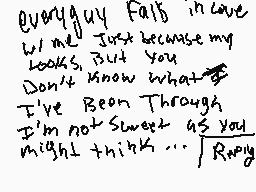 everyguy Falls in Love
w/ me Just because my
Looks, But you
Don't know what
I've Been Through
I'm not Sweet as you
might think ...